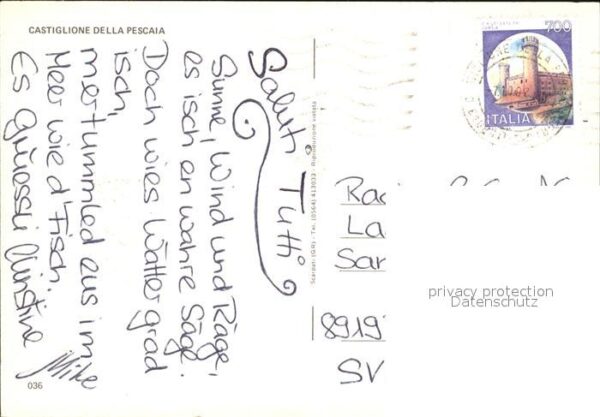 CASTIGLIONE DELLA PESCAIA
Saluti Tutti
Sunne, Wind und Räge,
es isch en wahre Säge.
Doch wies Wätter grad
isch,
mer tummled eus im
Meer wie d'Fisch.
Es grüessli
Mike
036
Scardati (GR) - Tel. (0564) 413033 - Riproduzione vietata
700
ITALIA
La
San
8919
SV
privacy protection
Datenschutz